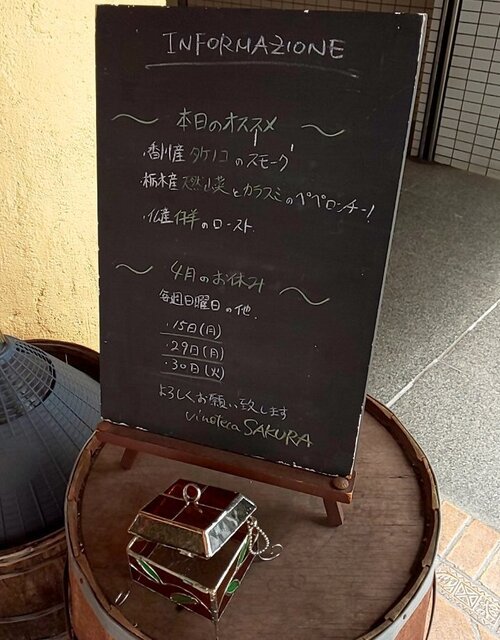 INFORMAZIONE
本日のオススメ
・香川産タケノコのスモーク
・栃木産天然山菜とカラスミのペペロンチーノ
・仏産仔羊のロースト
4月のお休み
毎週日曜日の他、
・15日(月)
・29日(月)
・30日(火)
よろしくお願い致します
vinoteca SAKURA